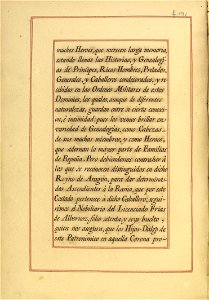 muchos Heroes, que merecen larga memoria,
estando llenas las Historias, y Genealogi-
as de Principes, Ricos Hombres, Prelados,
Generales, y Caballeros condecorados, y re-
cibidos en las Ordenes Militares de estos
Dominios, los quales, aunque de diferentes
naturalezas, guardan entre si cierta conexi-
on, é intimidad: pues los vemos brillar en
variedad de Genealogias, como Cabezas
de sus muchos miembros, y como Heroes,
que adornan la mayor parte de Familias
de España. Pero debiendonos contraher à
los que se reconocen distinguidos en dicho
Reyno de Aragón, para dar determina-
dos Ascendientes à la Rama, que por este
Costado pertenece à dicho Caballero, segui-
rèmos el Nobiliario del Licenciado Frias
de Albornoz, folio setenta, y seys buelto:
quien nos asegura, que los Hijos-Dalgo de
este Patronimico en aquella Corona pro-